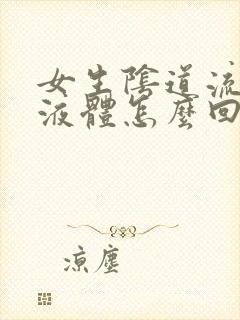 女生陰道流
液體怎麼回
凉塵